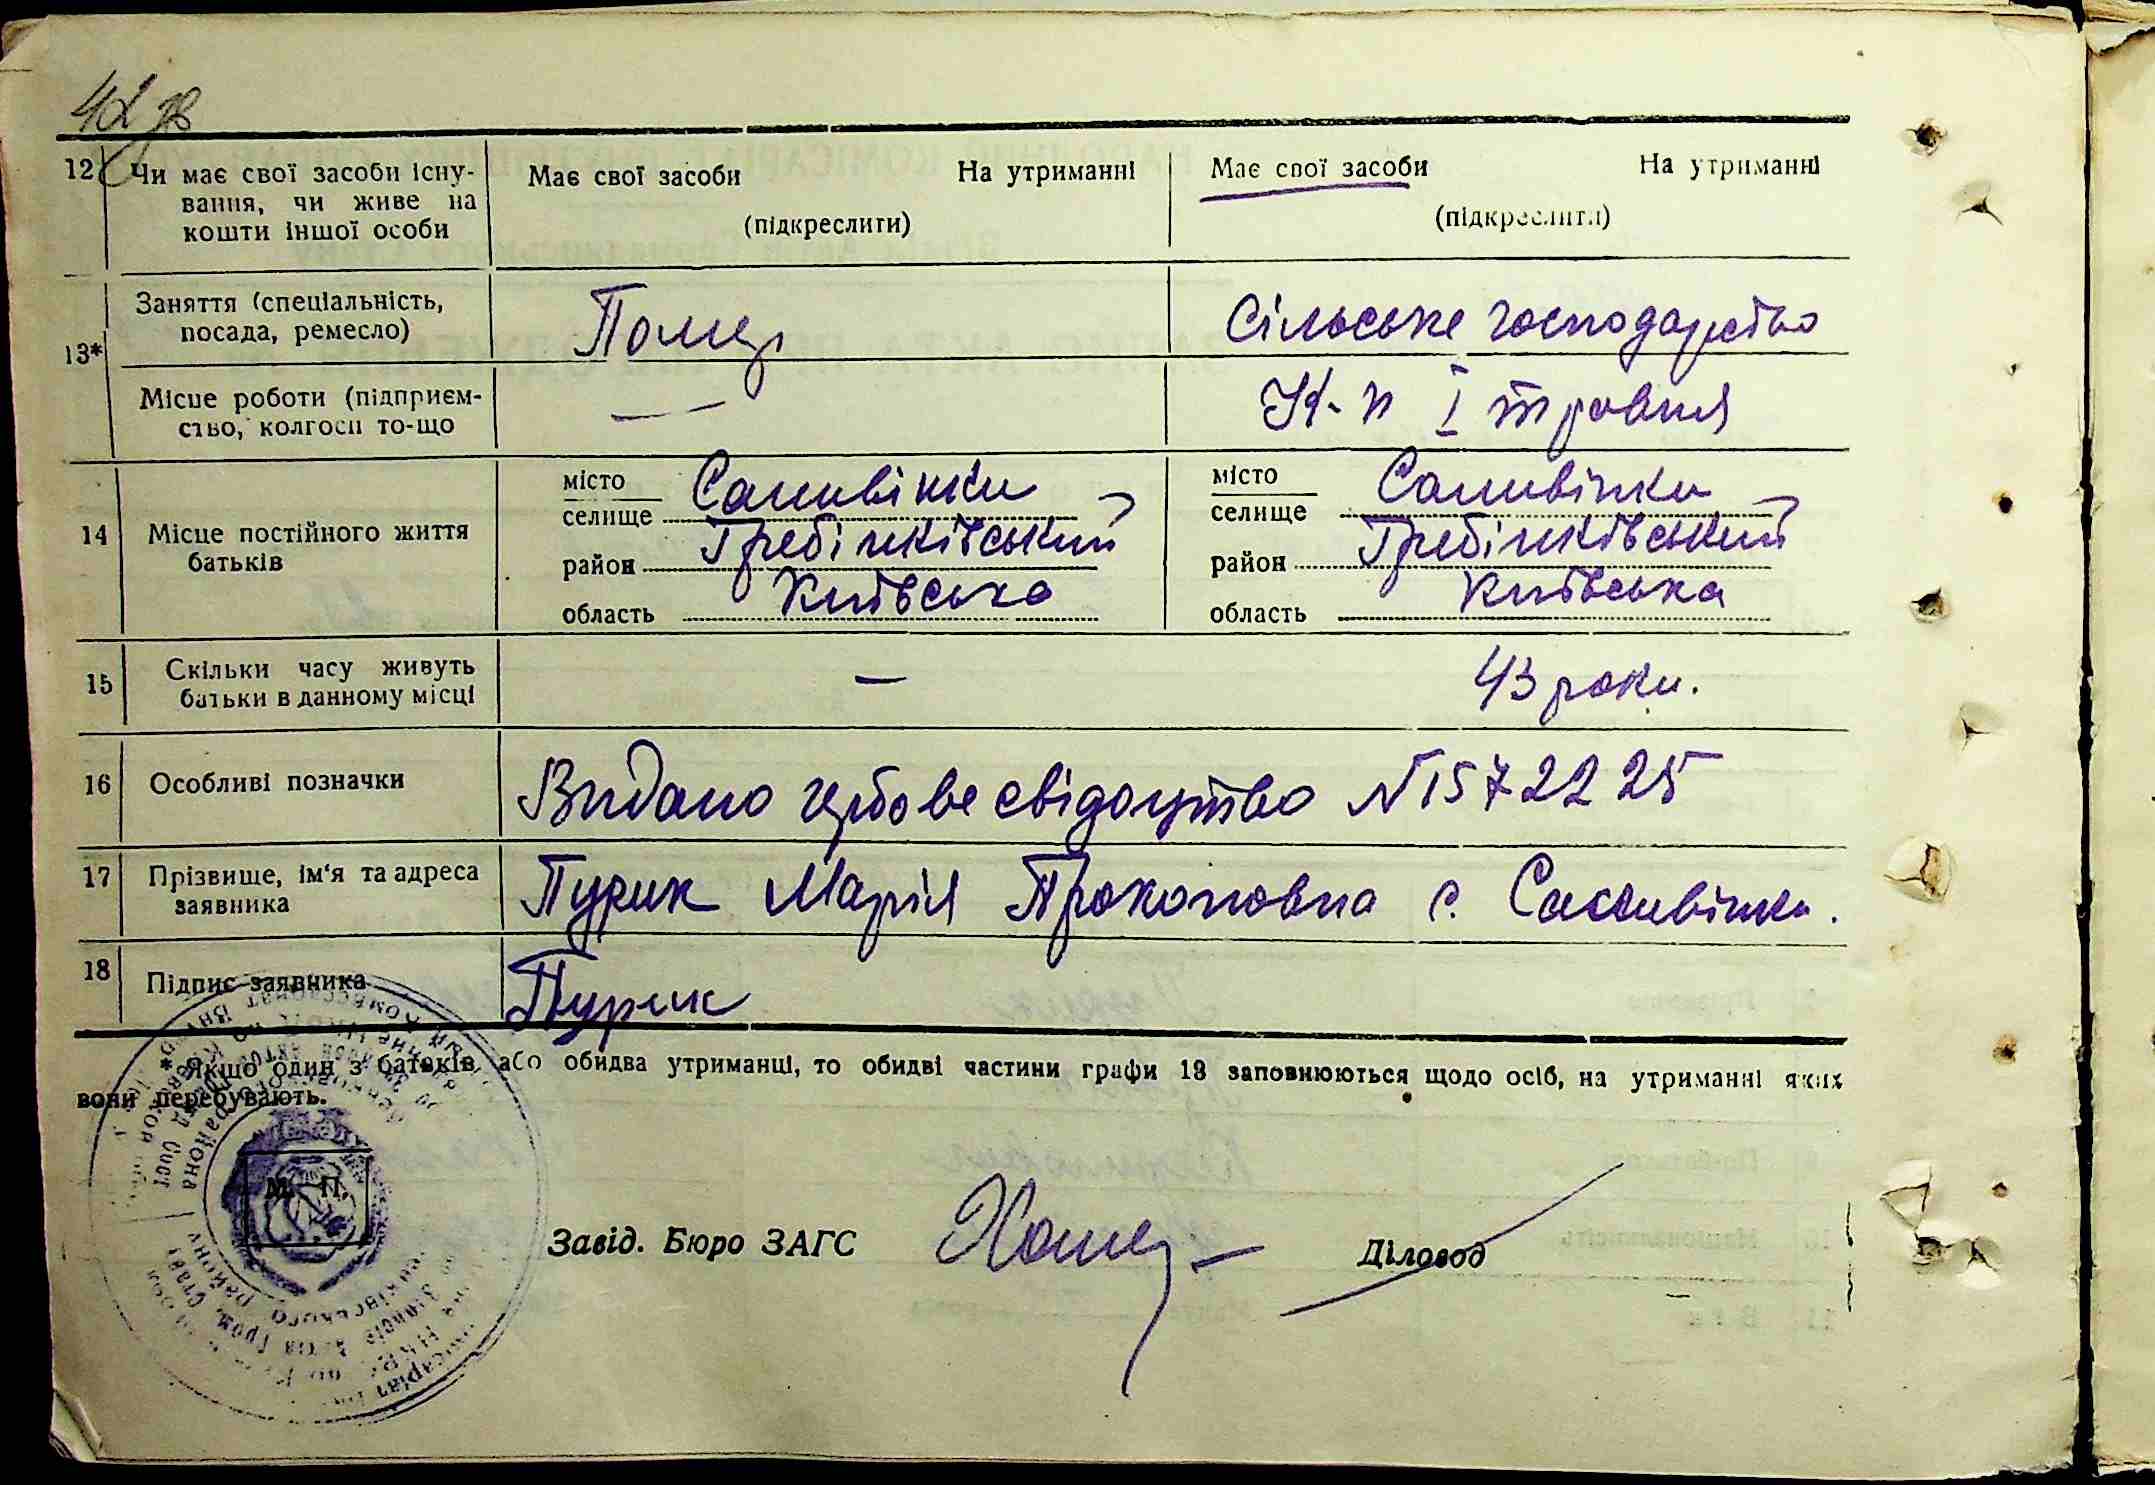 42 зв
12 Чи має свої засоби існу-
вання, чи живе на
кошти іншої особи
Має свої засоби На утриманні
(підкреслити)
Має свої засоби На утриманні
(підкреслити)
13*
Заняття (спеціальність,
посада, ремесло)
Помер
Сільське господарство
Місце роботи (підприєм-
ство, колгосп то-що
—
К-п І травня
14 Місце постійного життя
батьків
місто
селище Саливінки
район Гребінківський
область Київська
місто
селище Саливінки
район Гребінківський
область Київська
15 Скільки часу живуть
батьки в данному місці
—
43 роки.
16 Особливі позначки
Видано гербове свідоцтво N 1572225
17 Прізвище, ім'я та адреса
заявника
Пурик Марія Прокоповна с. Саливінки.
18 Підпис заявника
Пурик
* Якщо один з батьків або обидва утриманці, то обидві частини графи 13 заповнюються щодо осіб, на утриманні яких
вони перебувають.
М. П.
Завід. Бюро ЗАГС
Діловод